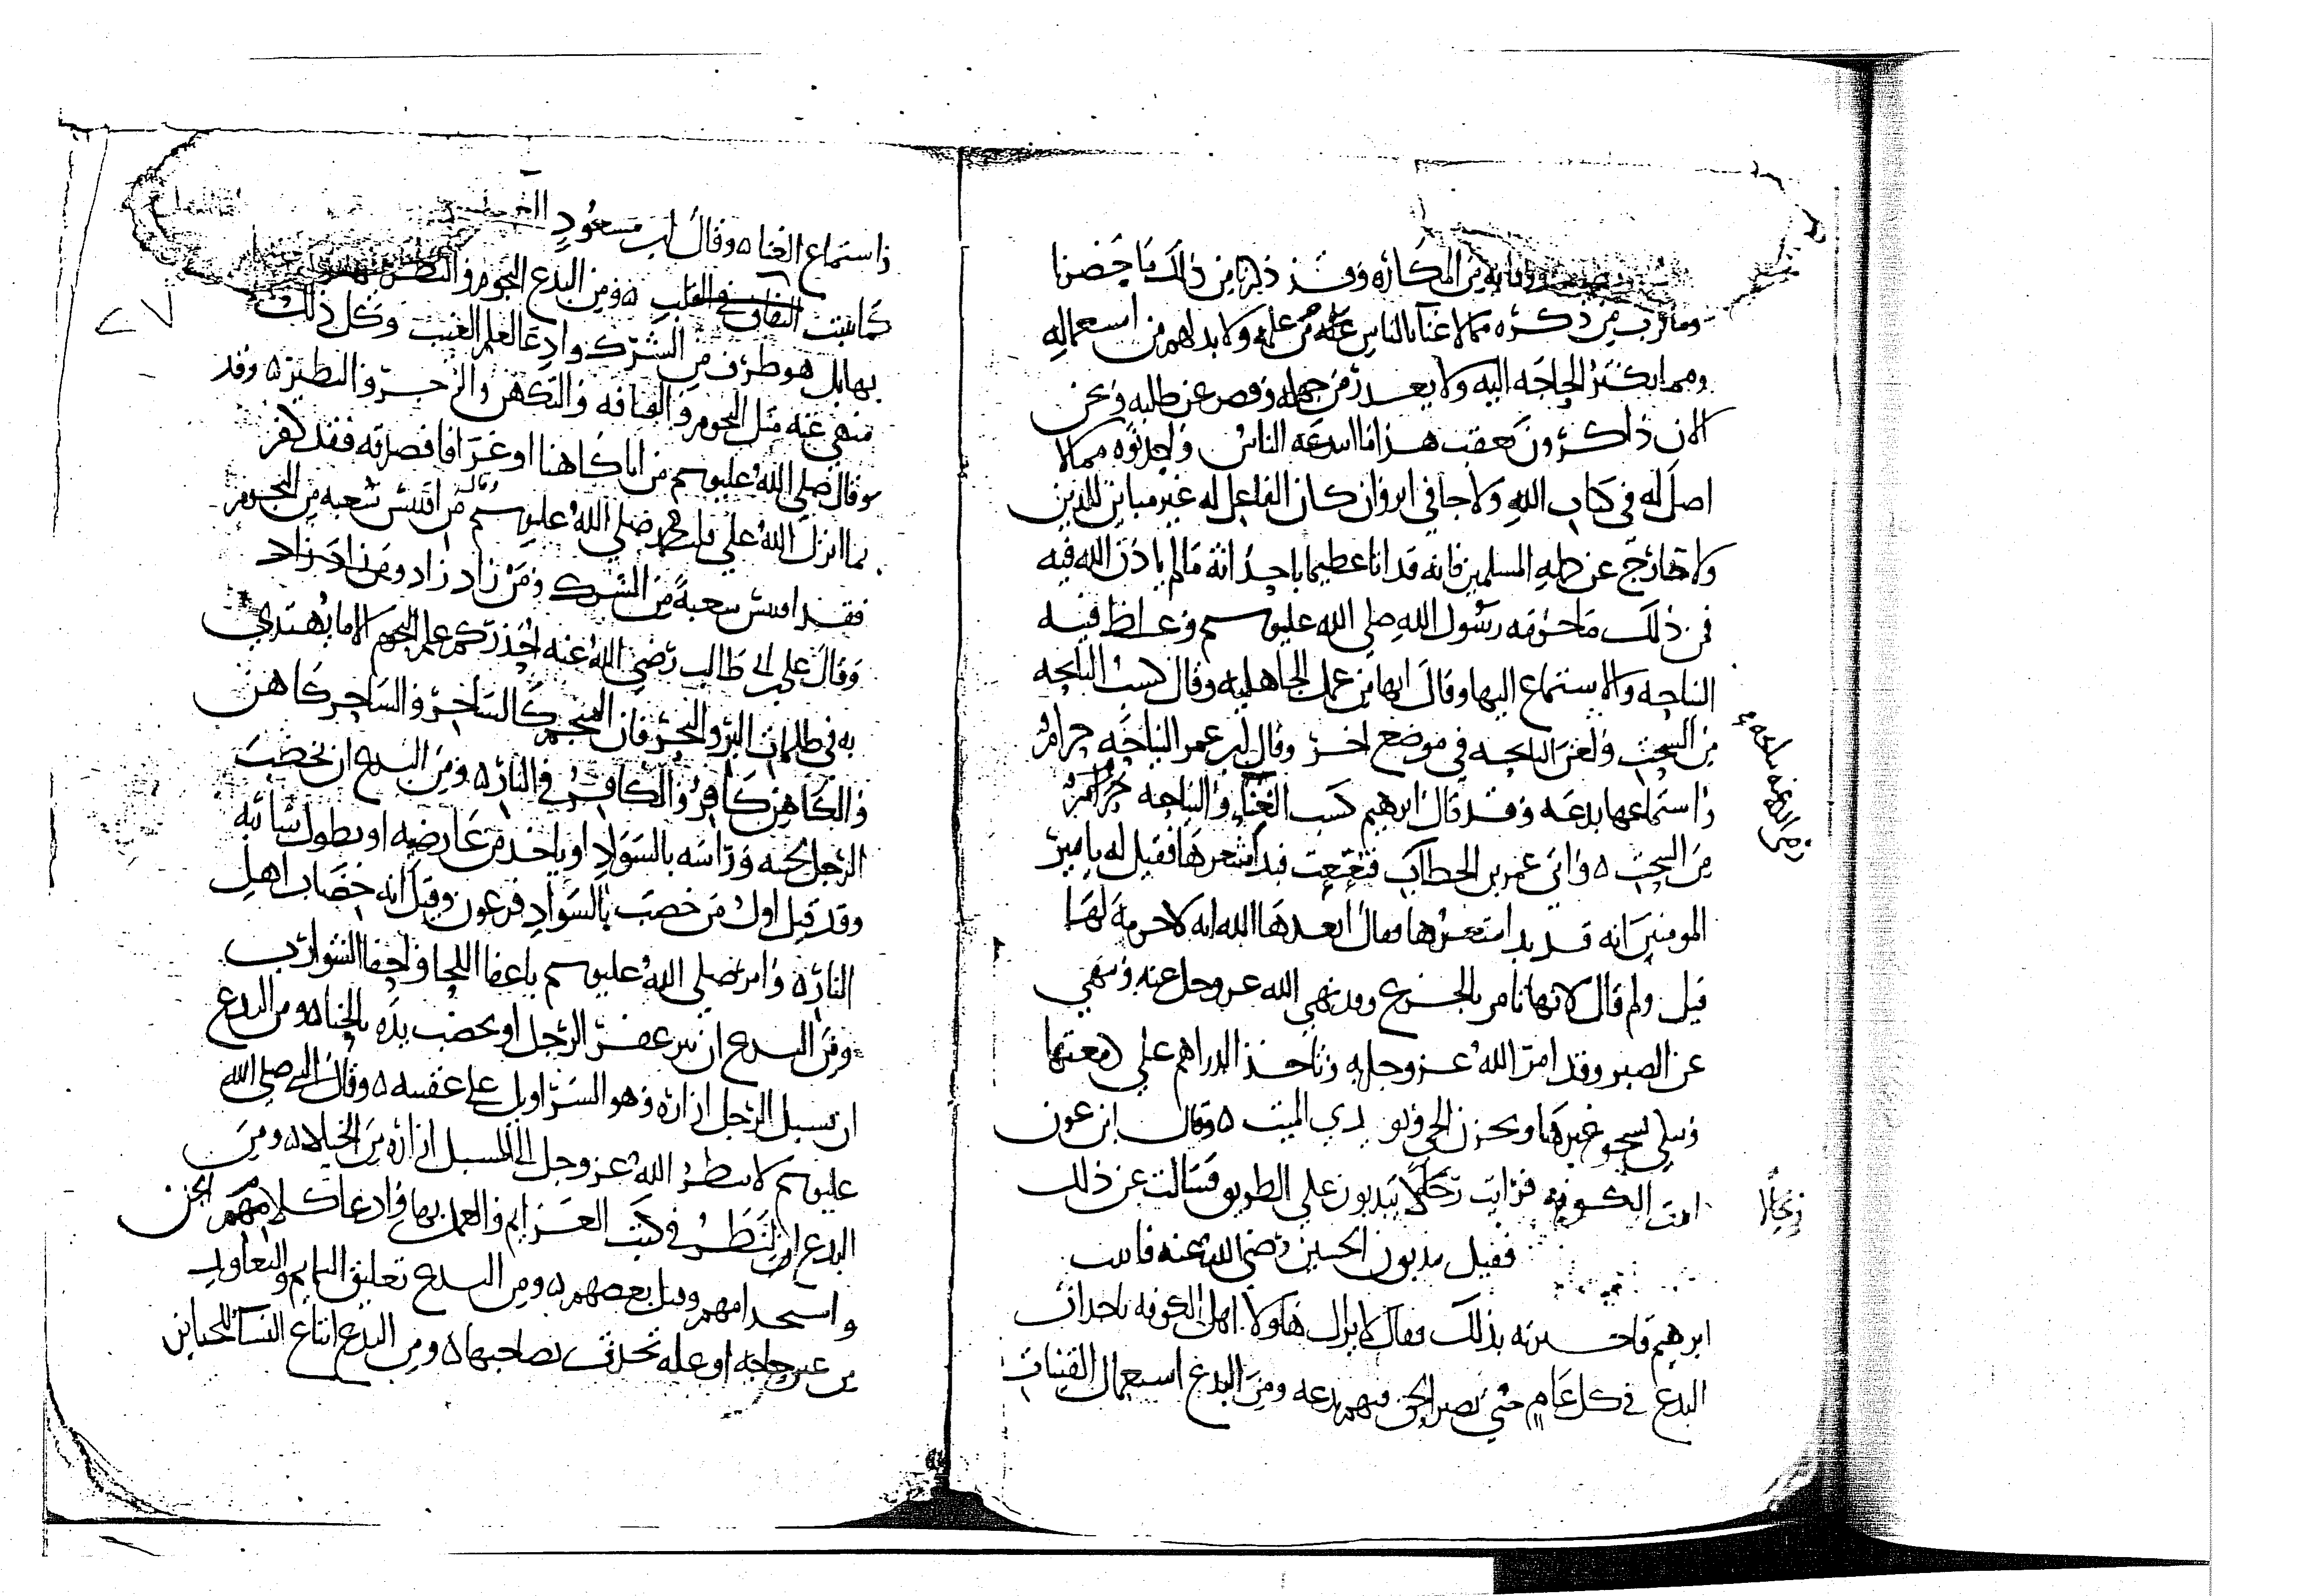 من المكاره وقد ذكرنا من ذلك ما حضرنا
وما قرب من ذكره مما لا غنا بالناس عن علمه ولا بد لهم من استعماله
ومما يكثر الحاجه اليه ولا يعذر من جهله وقصر عن طلبه ونحن
الان ذاكرون بعقب هذا ما ابتدعه الناس واحدثوه مما لا
اصل له في كتاب الله ولا جا في اثر وان كان الفاعل له غير مباين للدين
ولا خارج عن مله المسلمين فانه قد اتا عظيما باحداثه ما لم ياذن الله فيه
فمن ذلك ما حرمه رسول الله صلى الله عليه وسلم وغلظ فيه
النياحه والاستماع اليها وقال انها من عمل الجاهليه وقال كسب النايحه
من السحت ولعن النايحه في موضع اخر وقال ابن عمر النياحه حرام
واستماعها بدعه وقد قال ابرهيم كسب الغنا والنياحه حرام
من السحت ٥ واتي عمر بن الخطاب بنايحه رضي الله عنه
فبدا شعرها فقيل له يا امير
المومنين انه قد بدا شعرها فقال ابعدها الله انه لا حرمة لها
قيل ولم قال لانها تامر بالجزع وقد نهى الله عز وجل عنه وتنهي
عن الصبر وقد امر الله عز وجل به وتاخذ الدراهم على دمعتها
وتبكي بشجو غيرها وتحزن الحي وتوذي الميت ٥ وقال ابن عون
اتيت الكوفه فرايت رجالا يندبون على الطريق فسالت عن ذلك
رجالا
فقيل يندبون الحسين رضي الله عنه فاتيت
ابرهيم فاخبرته بذلك فقال لا يزال هاولا اهل الكوفه باحداث
البدع في كل عام حتى يصير الحق فيهم بدعه ومن البدع استعمال القينات
واستماع الغنا ٥ وقال ابن مسعود
كما ينبت النفاق في القلب ٥ ومن البدع النجوم والنظر
بها بل هو طرف من الشرك وادعا لعلم الغيب وكل ذلك
منهي عنه مثل النجوم والعيافه والتكهن والزجر والتطير ٥ وقد
وقال صلى الله عليه وسلم من اتا كاهنا او عرافا فصدقه فقد كفر
بما انزل الله على قلب محمد صلى الله عليه وسلم وقال من اقتبس شعبه من النجوم
فقد اقتبس شعبة من الشرك ومن زاد زاد ومن زاد زاد
وقال علي بن ابي طالب رضي الله عنه احذركم علم النجوم الا ما يهتدي
به في ظلمات البر والبحر فان المنجم كالساحر والساحر كاهن
والكاهن كافر والكافر في النار ٥ ومن البدع ان يخضب
الرجل لحيته وراسه بالسواد او ياخذ من عارضيه او يطول شاربه
وقد قيل اول من خضب بالسواد فرعون وقيل انه خضاب اهل
النار ٥ وامر صلى الله عليه وسلم باعفا اللحا واحفا الشوارب
ومن البدع ان يتزعفر الرجل او يخضب يده بالحنا ٥ ومن البدع
ان يسبل الرجل ازاره وهو السراويل على عقبيه ٥ وقال النبي صلى الله
عليه وسلم لا ينظر الله عز وجل الى المسبل ازاره من الخيلا ٥ ومن
البدع النظر في كتب العزايم والعمل بها وادعا كلامهم الجن
واستخدامهم وقتل بعضهم ٥ ومن البدع تعليق التمايم والتعاويذ
من غير حاجه او عله تحدث بصاحبها ٥ ومن البدع اتباع النسا للجنايز